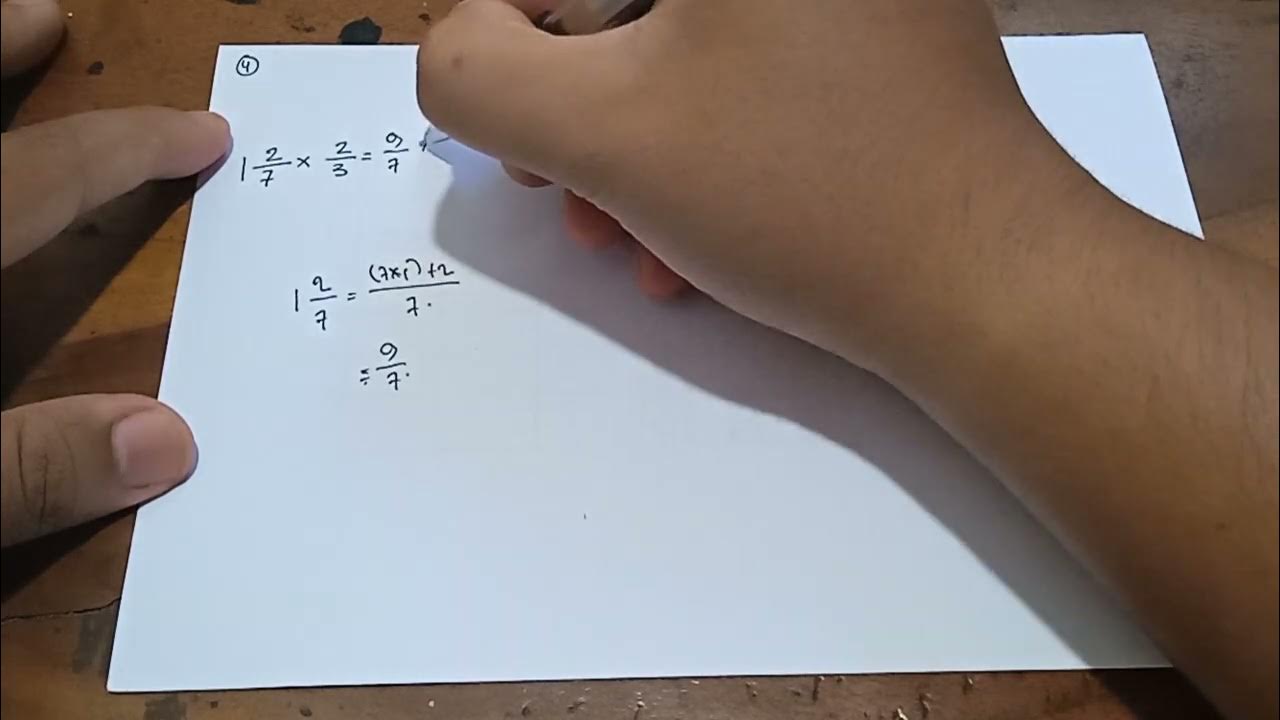 4
1 2/7 × 2/3 = 9/7
1 2/7 = (7×1)+2/7.
= 9/7.